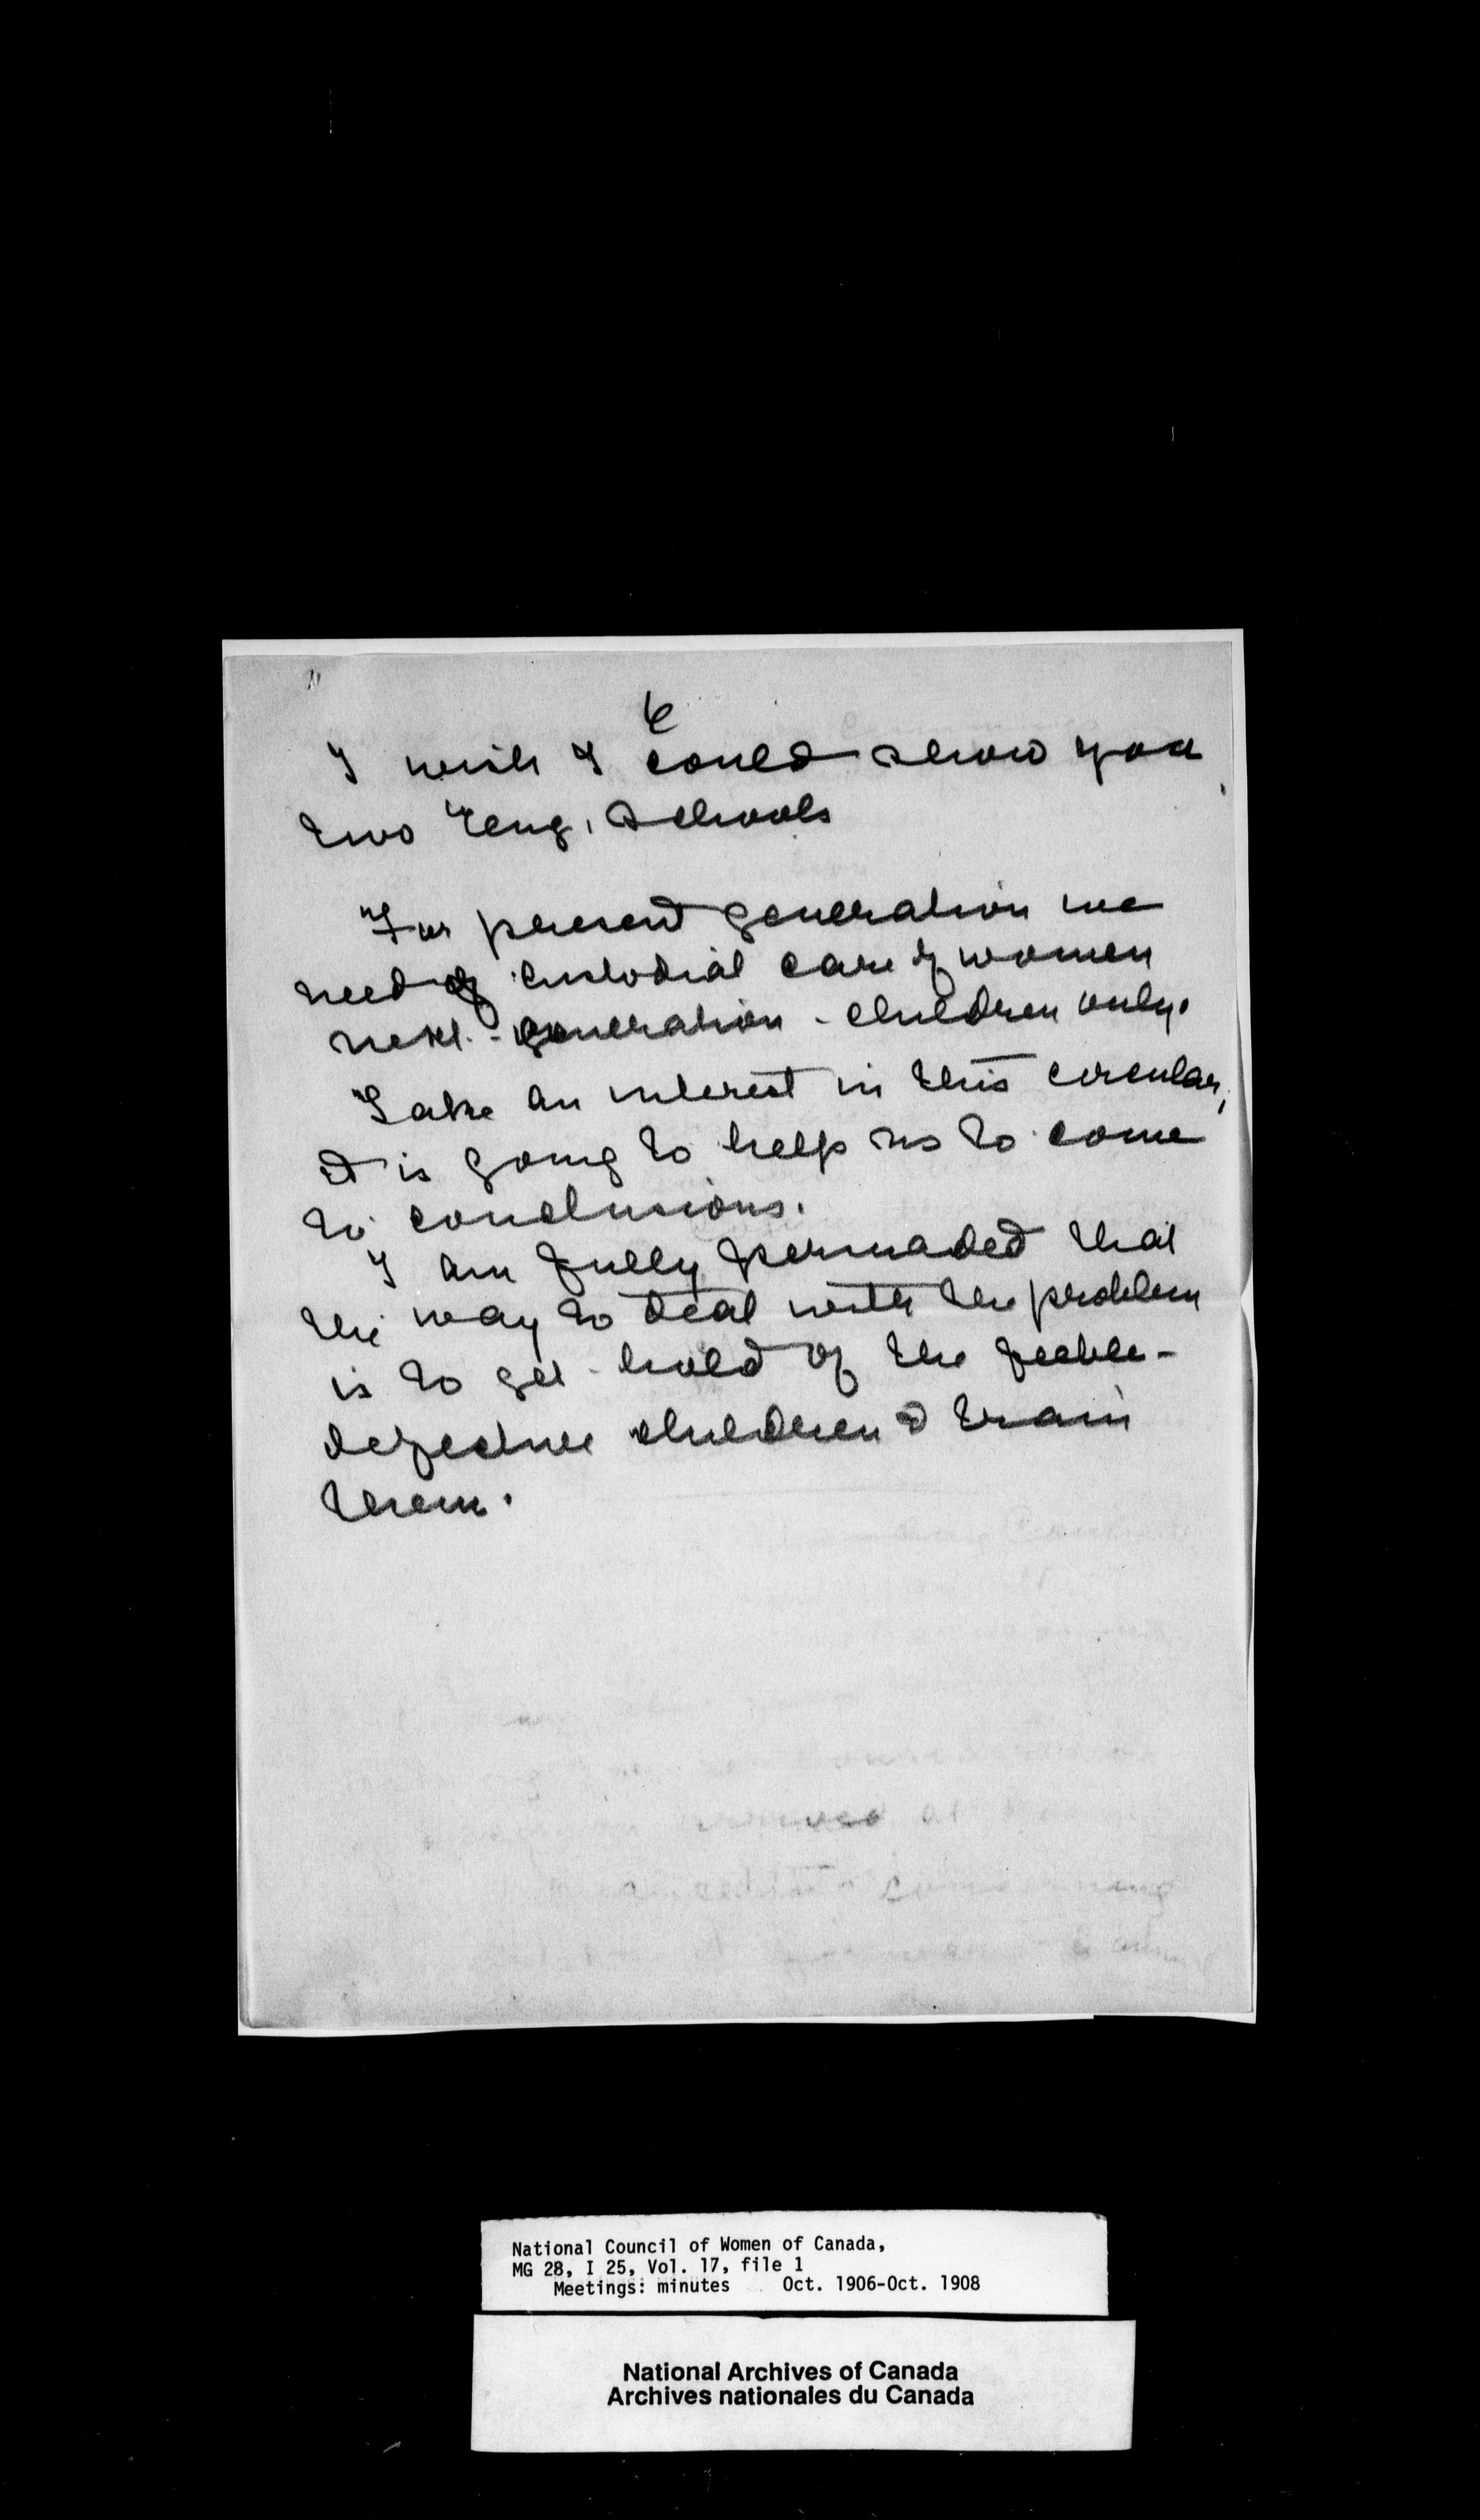 6
I wish I could show you
two Eng. Schools
For present generation we
need of custodial care of women
next - generation - children only.
Take an interest in this circular,
it is going to help us to come
to conclusions.
I am fully persuaded that
the way to deal with the problem
is to get hold of the feeble-
defective children & train
them.
National Council of Women of Canada,
MG 28, I 25, Vol. 17, file 1
Meetings: minutes Oct. 1906-Oct. 1908
National Archives of Canada
Archives nationales du Canada